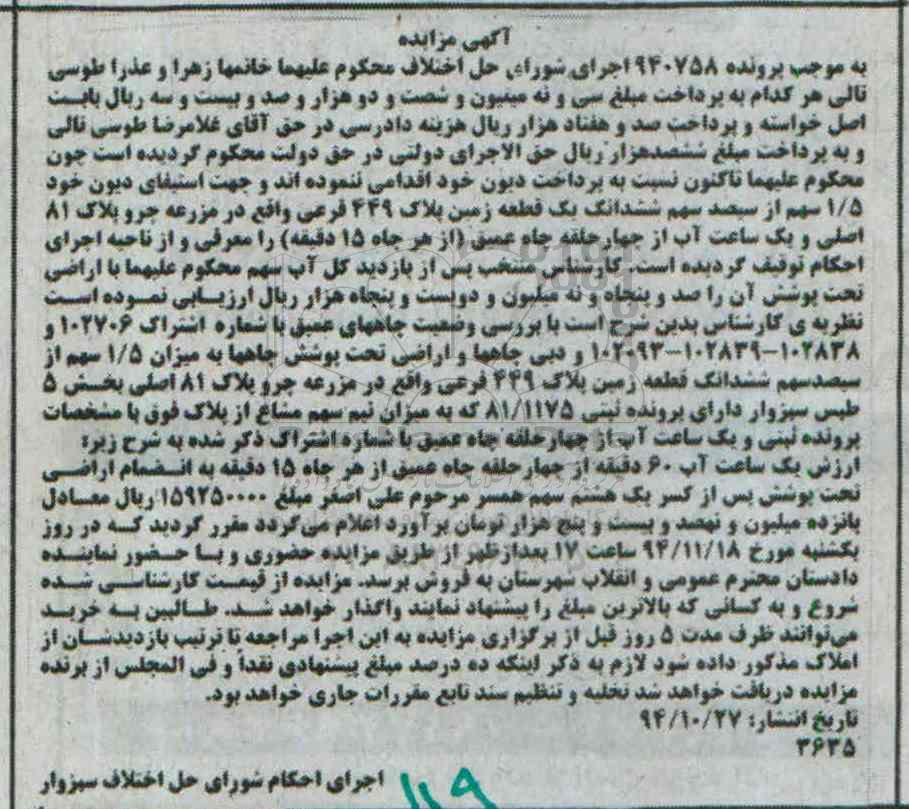 آگهی مزایده
به موجب پرونده ۹۴۰۷۵۸ اجرای شورای حل اختلاف محکوم علیهما خانمها زهرا و عذرا طوسی
ثالی هر کدام به پرداخت مبلغ سی و نه میلیون و شصت و دو هزار و صد و بیست و سه ریال بابت
اصل خواسته و پرداخت صد و هفتاد هزار ریال هزینه دادرسی در حق آقای غلامرضا طوسی ثالی
و به پرداخت مبلغ ششصدهزار ریال حق الاجرای دولتی در حق دولت محکوم گردیده است چون
محکوم علیهما تاکنون نسبت به پرداخت دیون خود اقدامی ننموده اند و جهت استیفای دیون خود
۱/۵ سهم از سیصد سهم ششدانگ یک قطعه زمین پلاک ۴۴۹ فرعی واقع در مزرعه چرو پلاک ۸۱
اصلی و یک ساعت آب از چهارحلقه چاه عمیق (از هر چاه ۱۵ دقیقه) را معرفی و از ناحیه اجرای
احکام توقیف گردیده است. کارشناس منتخب پس از بازدید کل آب سهم محکوم علیهما با اراضی
تحت پوشش آن را صد و پنجاه و نه میلیون و دویست و پنجاه هزار ریال ارزیابی نموده است
نظریه ی کارشناس بدین شرح است با بررسی وضعیت چاههای عمیق با شماره اشتراک ۱۰۲۷۰۶ و
۱۰۲۸۳۸-۱۰۲۸۳۹-۱۰۲۰۹۳ و دبی چاهها و اراضی تحت پوشش چاهها به میزان ۱/۵ سهم از
سیصدسهم ششدانگ قطعه زمین پلاک ۴۴۹ فرعی واقع در مزرعه چرو پلاک ۸۱ اصلی بخش ۵
طبس سبزوار دارای پرونده ثبتی ۸۱/۱۱۷۵ که به میزان نیم سهم مشاع از پلاک فوق با مشخصات
پرونده ثبتی و یک ساعت آب از چهارحلقه چاه عمیق با شماره اشتراک ذکر شده به شرح زیر:
ارزش یک ساعت آب ۶۰ دقیقه از چهارحلقه چاه عمیق از هر چاه ۱۵ دقیقه به انضمام اراضی
تحت پوشش پس از کسر یک هشتم سهم همسر مرحوم علی اصغر مبلغ ۱۵۹۲۵۰۰۰۰ ریال معادل
پانزده میلیون و نهصد و بیست و پنج هزار تومان برآورد اعلام می‌گردد مقرر گردید که در روز
یکشنبه مورخ ۹۴/۱۱/۱۸ ساعت ۱۷ بعدازظهر از طریق مزایده حضوری و با حضور نماینده
دادستان محترم عمومی و انقلاب شهرستان به فروش برسد. مزایده از قیمت کارشناسی شده
شروع و به کسانی که بالاترین مبلغ را پیشنهاد نمایند واگذار خواهد شد. طالبین به خرید
می‌توانند ظرف مدت ۵ روز قبل از برگزاری مزایده به این اجرا مراجعه تا ترتیب بازدیدشان از
املاک مذکور داده شود لازم به ذکر اینکه ده درصد مبلغ پیشنهادی نقداً و فی المجلس از برنده
مزایده دریافت خواهد شد تخلیه و تنظیم سند تابع مقررات جاری خواهد بود.
تاریخ انتشار: ۹۴/۱۰/۲۷
۳۶۳۵
اجرای احکام شورای حل اختلاف سبزوار
۱۱۹